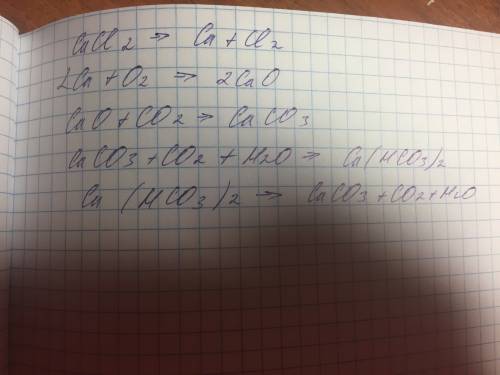 CaCl2 => Ca + Cl2
2Ca + O2 => 2CaO
CaO + CO2 => CaCO3
CaCO3 + CO2 + H2O => Ca(HCO3)2
Ca (HCO3)2 => CaCO3 + CO2 + H2O